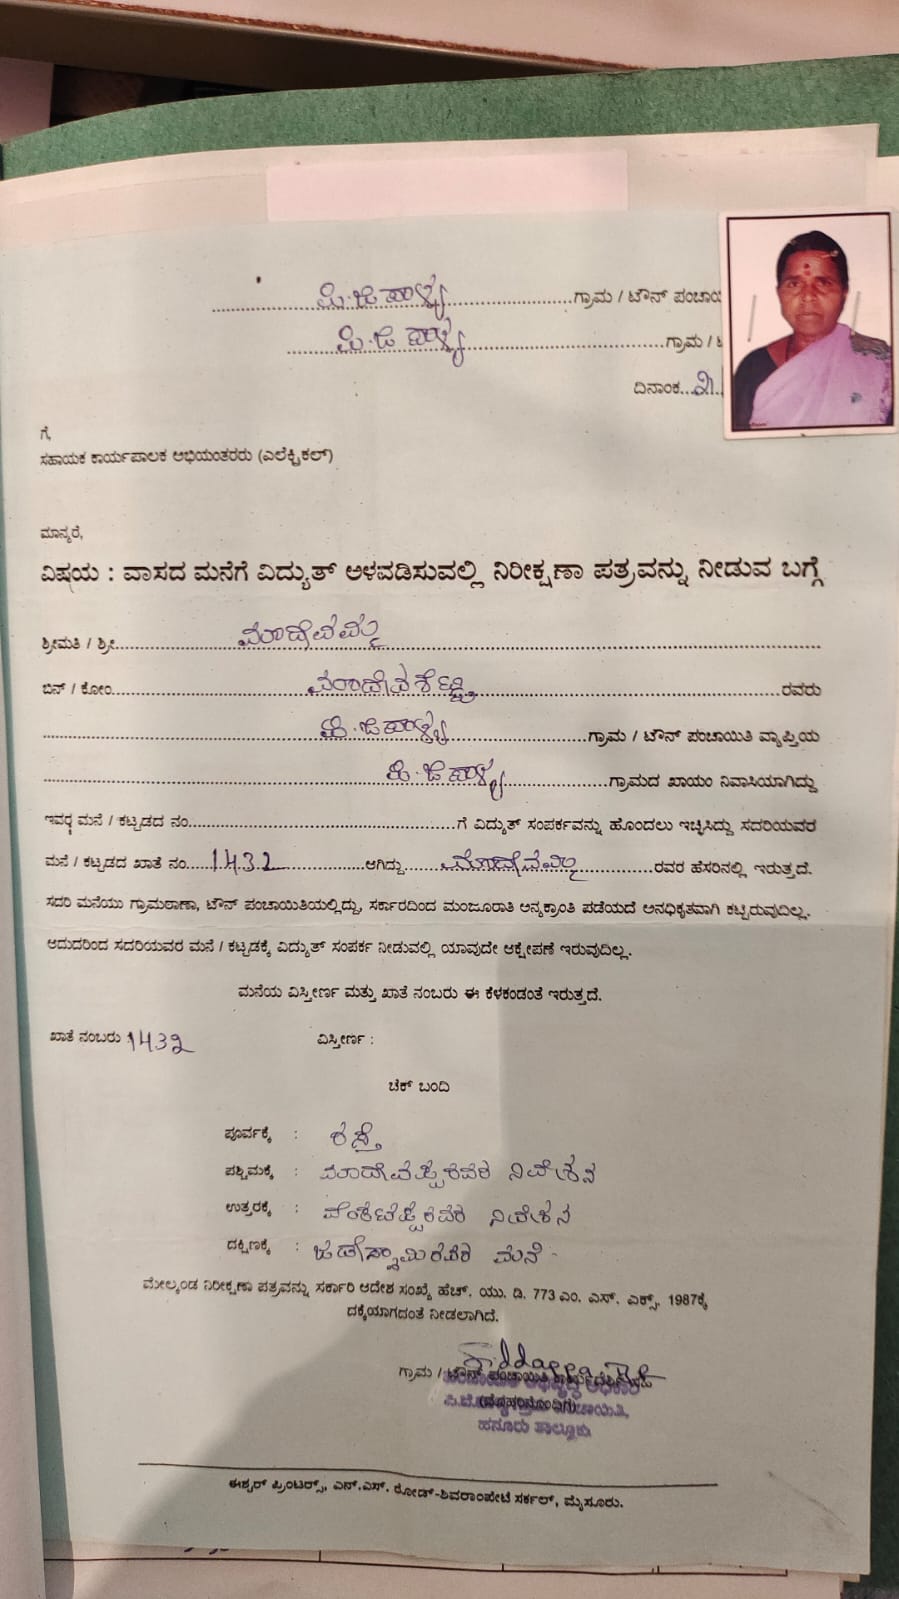 ಪಿ.ಜಿ ಪಾಳ್ಯ ಗ್ರಾಮ / ಟೌನ್ ಪಂಚಾಯಿ
ಪಿ.ಜಿ ಪಾಳ್ಯ ಗ್ರಾಮ /
ದಿನಾಂಕ
ಗೆ,
ಸಹಾಯಕ ಕಾರ್ಯಪಾಲಕ ಅಭಿಯಂತರರು (ಎಲೆಕ್ಟ್ರಿಕಲ್)
ಮಾನ್ಯರೆ,
ವಿಷಯ : ವಾಸದ ಮನೆಗೆ ವಿದ್ಯುತ್ ಅಳವಡಿಸುವಲ್ಲಿ ನಿರೀಕ್ಷಣಾ ಪತ್ರವನ್ನು ನೀಡುವ ಬಗ್ಗೆ
ಶ್ರೀಮತಿ / ಶ್ರೀ ಮಾದೇವಮ್ಮ
ಬಿನ್ / ಕೋಂ ಮಾದೇವಶೆಟ್ಟಿ ರವರು
ಪಿ.ಜಿ ಪಾಳ್ಯ ಗ್ರಾಮ / ಟೌನ್ ಪಂಚಾಯಿತಿ ವ್ಯಾಪ್ತಿಯ
ಪಿ.ಜಿ ಪಾಳ್ಯ ಗ್ರಾಮದ ಖಾಯಂ ನಿವಾಸಿಯಾಗಿದ್ದು
ಇವರ ಮನೆ / ಕಟ್ಟಡದ ನಂ ಗೆ ವಿದ್ಯುತ್ ಸಂಪರ್ಕವನ್ನು ಹೊಂದಲು ಇಚ್ಛಿಸಿದ್ದು ಸದರಿಯವರ
ಮನೆ / ಕಟ್ಟಡದ ಖಾತೆ ನಂ 1432 ಆಗಿದ್ದು ಮಾದೇವಮ್ಮ ರವರ ಹೆಸರಿನಲ್ಲಿ ಇರುತ್ತದೆ.
ಸದರಿ ಮನೆಯು ಗ್ರಾಮಠಾಣಾ, ಟೌನ್ ಪಂಚಾಯಿತಿಯಲ್ಲಿದ್ದು, ಸರ್ಕಾರದಿಂದ ಮಂಜೂರಾತಿ ಅನ್ಯಕ್ರಾಂತಿ ಪಡೆಯದೆ ಅನಧಿಕೃತವಾಗಿ ಕಟ್ಟಿರುವುದಿಲ್ಲ.
ಆದುದರಿಂದ ಸದರಿಯವರ ಮನೆ / ಕಟ್ಟಡಕ್ಕೆ ವಿದ್ಯುತ್ ಸಂಪರ್ಕ ನೀಡುವಲ್ಲಿ ಯಾವುದೇ ಆಕ್ಷೇಪಣೆ ಇರುವುದಿಲ್ಲ.
ಮನೆಯ ವಿಸ್ತೀರ್ಣ ಮತ್ತು ಖಾತೆ ನಂಬರು ಈ ಕೆಳಕಂಡಂತೆ ಇರುತ್ತದೆ.
ಖಾತೆ ನಂಬರು 1432 ವಿಸ್ತೀರ್ಣ :
ಚೆಕ್ ಬಂದಿ
ಪೂರ್ವಕ್ಕೆ : ರಸ್ತೆ
ಪಶ್ಚಿಮಕ್ಕೆ : ಮಾದೇವಪ್ಪರವರ ನಿವೇಶನ
ಉತ್ತರಕ್ಕೆ : ವೆಂಕಟಪ್ಪರವರ ನಿವೇಶನ
ದಕ್ಷಿಣಕ್ಕೆ : ಜಡೇಸ್ವಾಮಿರವರ ಮನೆ
ಮೇಲ್ಕಂಡ ನಿರೀಕ್ಷಣಾ ಪತ್ರವನ್ನು ಸರ್ಕಾರಿ ಆದೇಶ ಸಂಖ್ಯೆ ಹೆಚ್. ಯು. ಡಿ. 773 ಎಂ. ಎಸ್. ಎಕ್ಸ್. 1987ಕ್ಕೆ
ದಕ್ಕೆಯಾಗದಂತೆ ನೀಡಲಾಗಿದೆ.
ಗ್ರಾಮ / ಟೌನ್ ಪಂಚಾಯಿತಿ
ಹನೂರು ತಾಲ್ಲೂಕು
ಈಶ್ವರ್ ಪ್ರಿಂಟರ್ಸ್, ಎನ್.ಎಸ್. ರೋಡ್-ಶಿವರಾಂಪೇಟೆ ಸರ್ಕಲ್, ಮೈಸೂರು.